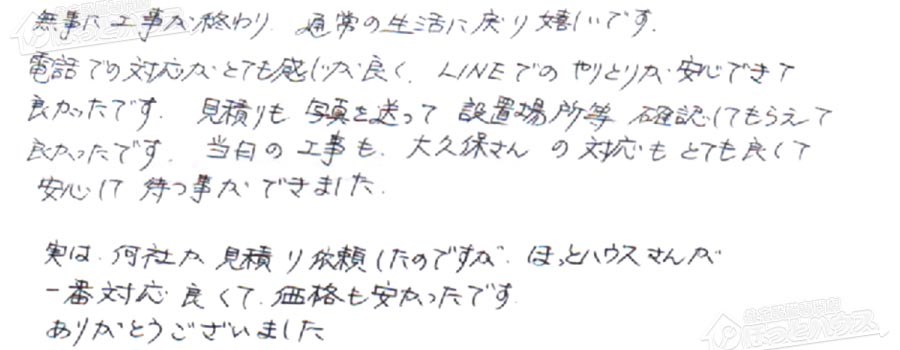 無事に工事が終わり、通常の生活に戻り嬉しいです。
電話での対応がとても感じが良く、LINEでのやりとりが安心できて
良かったです。見積りも写真を送って設置場所等確認してもらえて
良かったです。当日の工事も、大久保さんの対応もとても良くて
安心して待つ事ができました。
実は、何社か見積り依頼したのですが、ほっとハウスさんが
一番対応良くて、価格も安かったです。
ありがとうございました
ほっとハウス